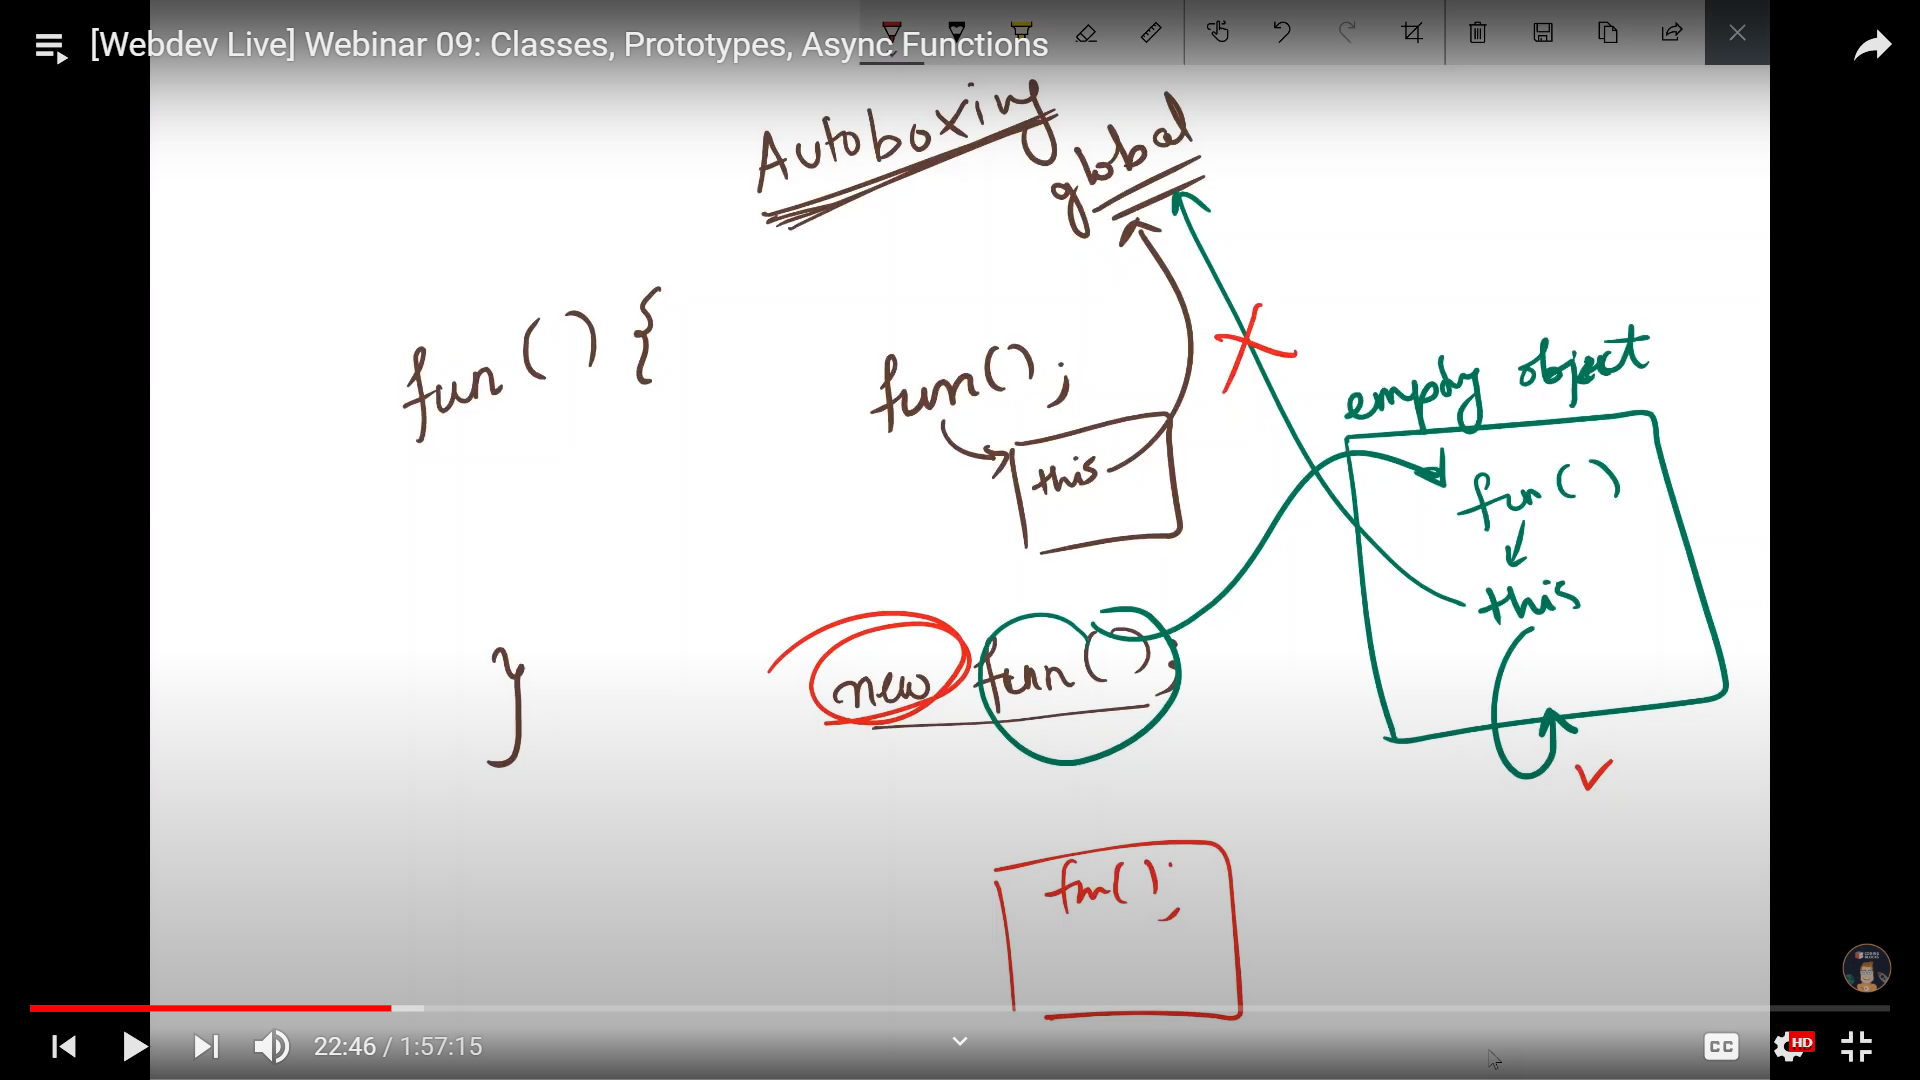 [Webdev Live] Webinar 09: Classes, Prototypes, Async Functions
Autoboxing
global
fun () {
fun();
this
empty object
fun ()
this
new fun();
}
fun();
22:46 / 1:57:15
CC
HD
CODING
BLOCKS